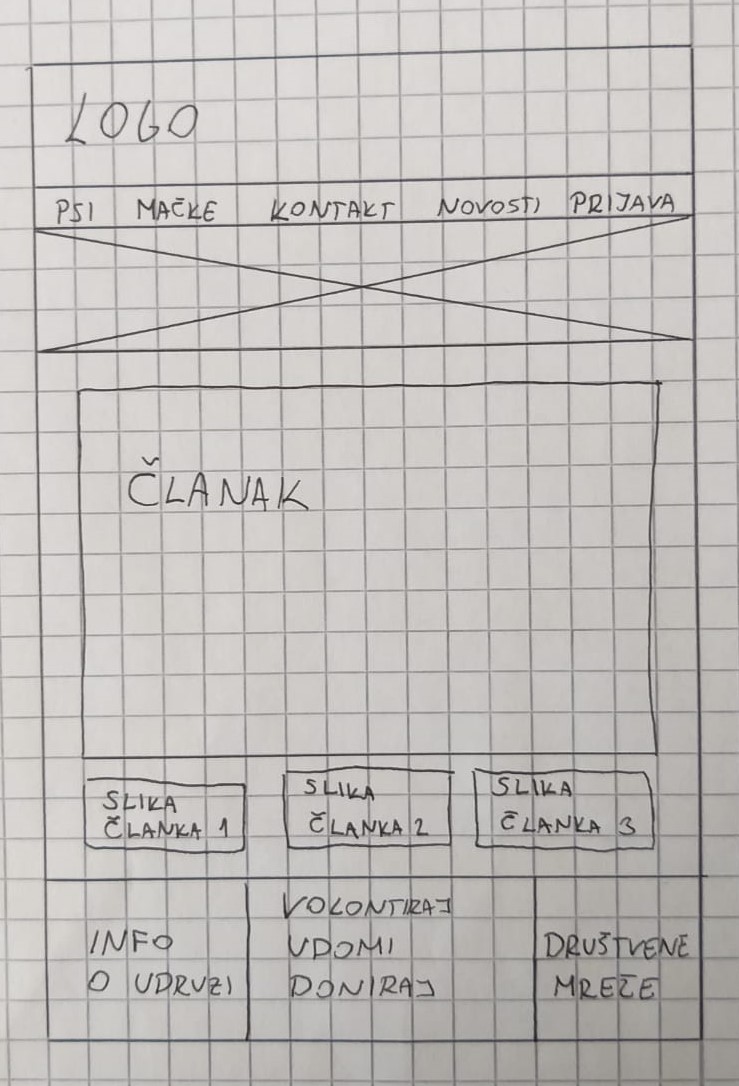 LOGO
PSI MAČKE KONTAKT NOVOSTI PRIJAVA
ČLANAK
SLIKA
ČLANKA 1
SLIKA
ČLANKA 2
SLIKA
ČLANKA 3
INFO
O UDRUZI
VOLONTIRAJ
UDOMI
DONIRAJ
DRUŠTVENE
MREŽE